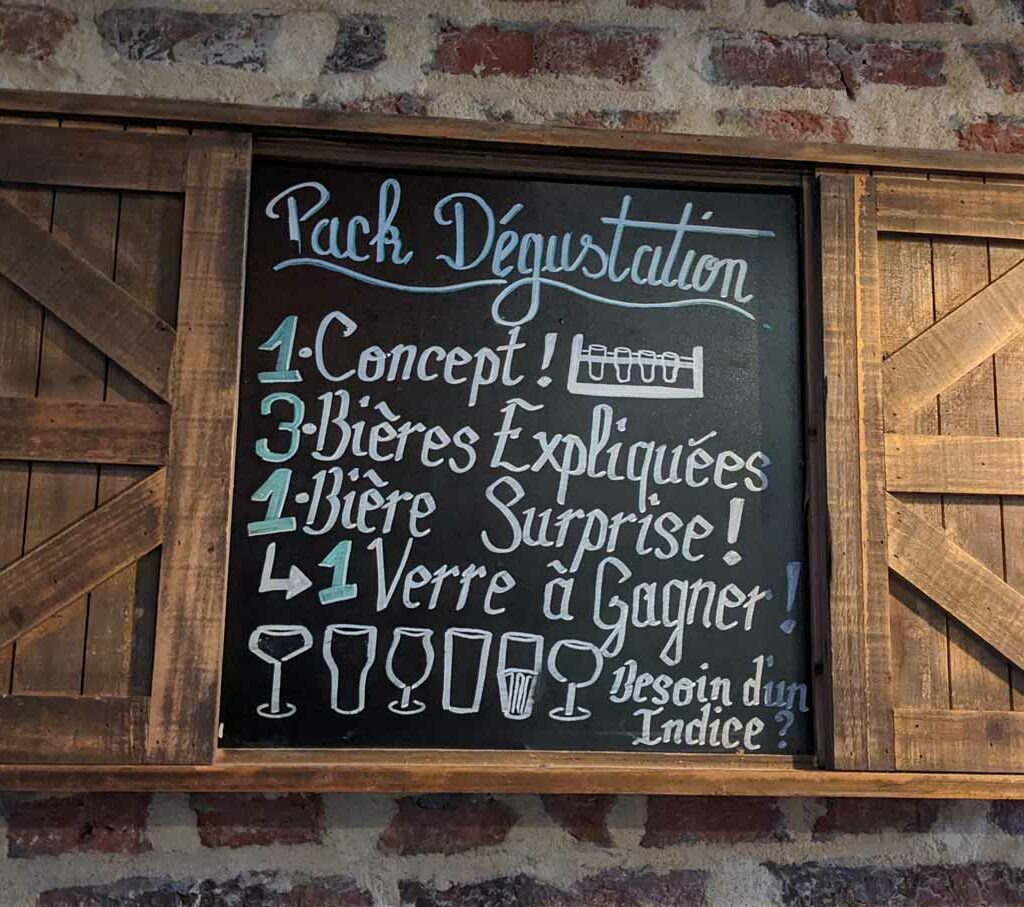 Pack Dégustation
1·Concept !
3·Bières Expliquées
1·Bière Surprise !
↳1 Verre à Gagner !
Besoin d'un
Indice ?